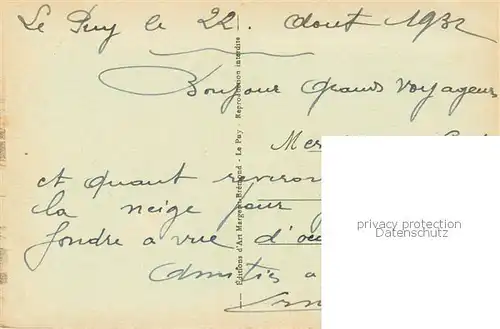 Le Puy le 22. Aout 1932
Bonjour Grands Voyageurs
Mer
et quant reviron
la neige pour
fondre a vue d'oe
Amitiés a
Éditions d'Art Margerit-Brémond - Le Puy - Reproduction interdite
privacy protection
Datenschutz